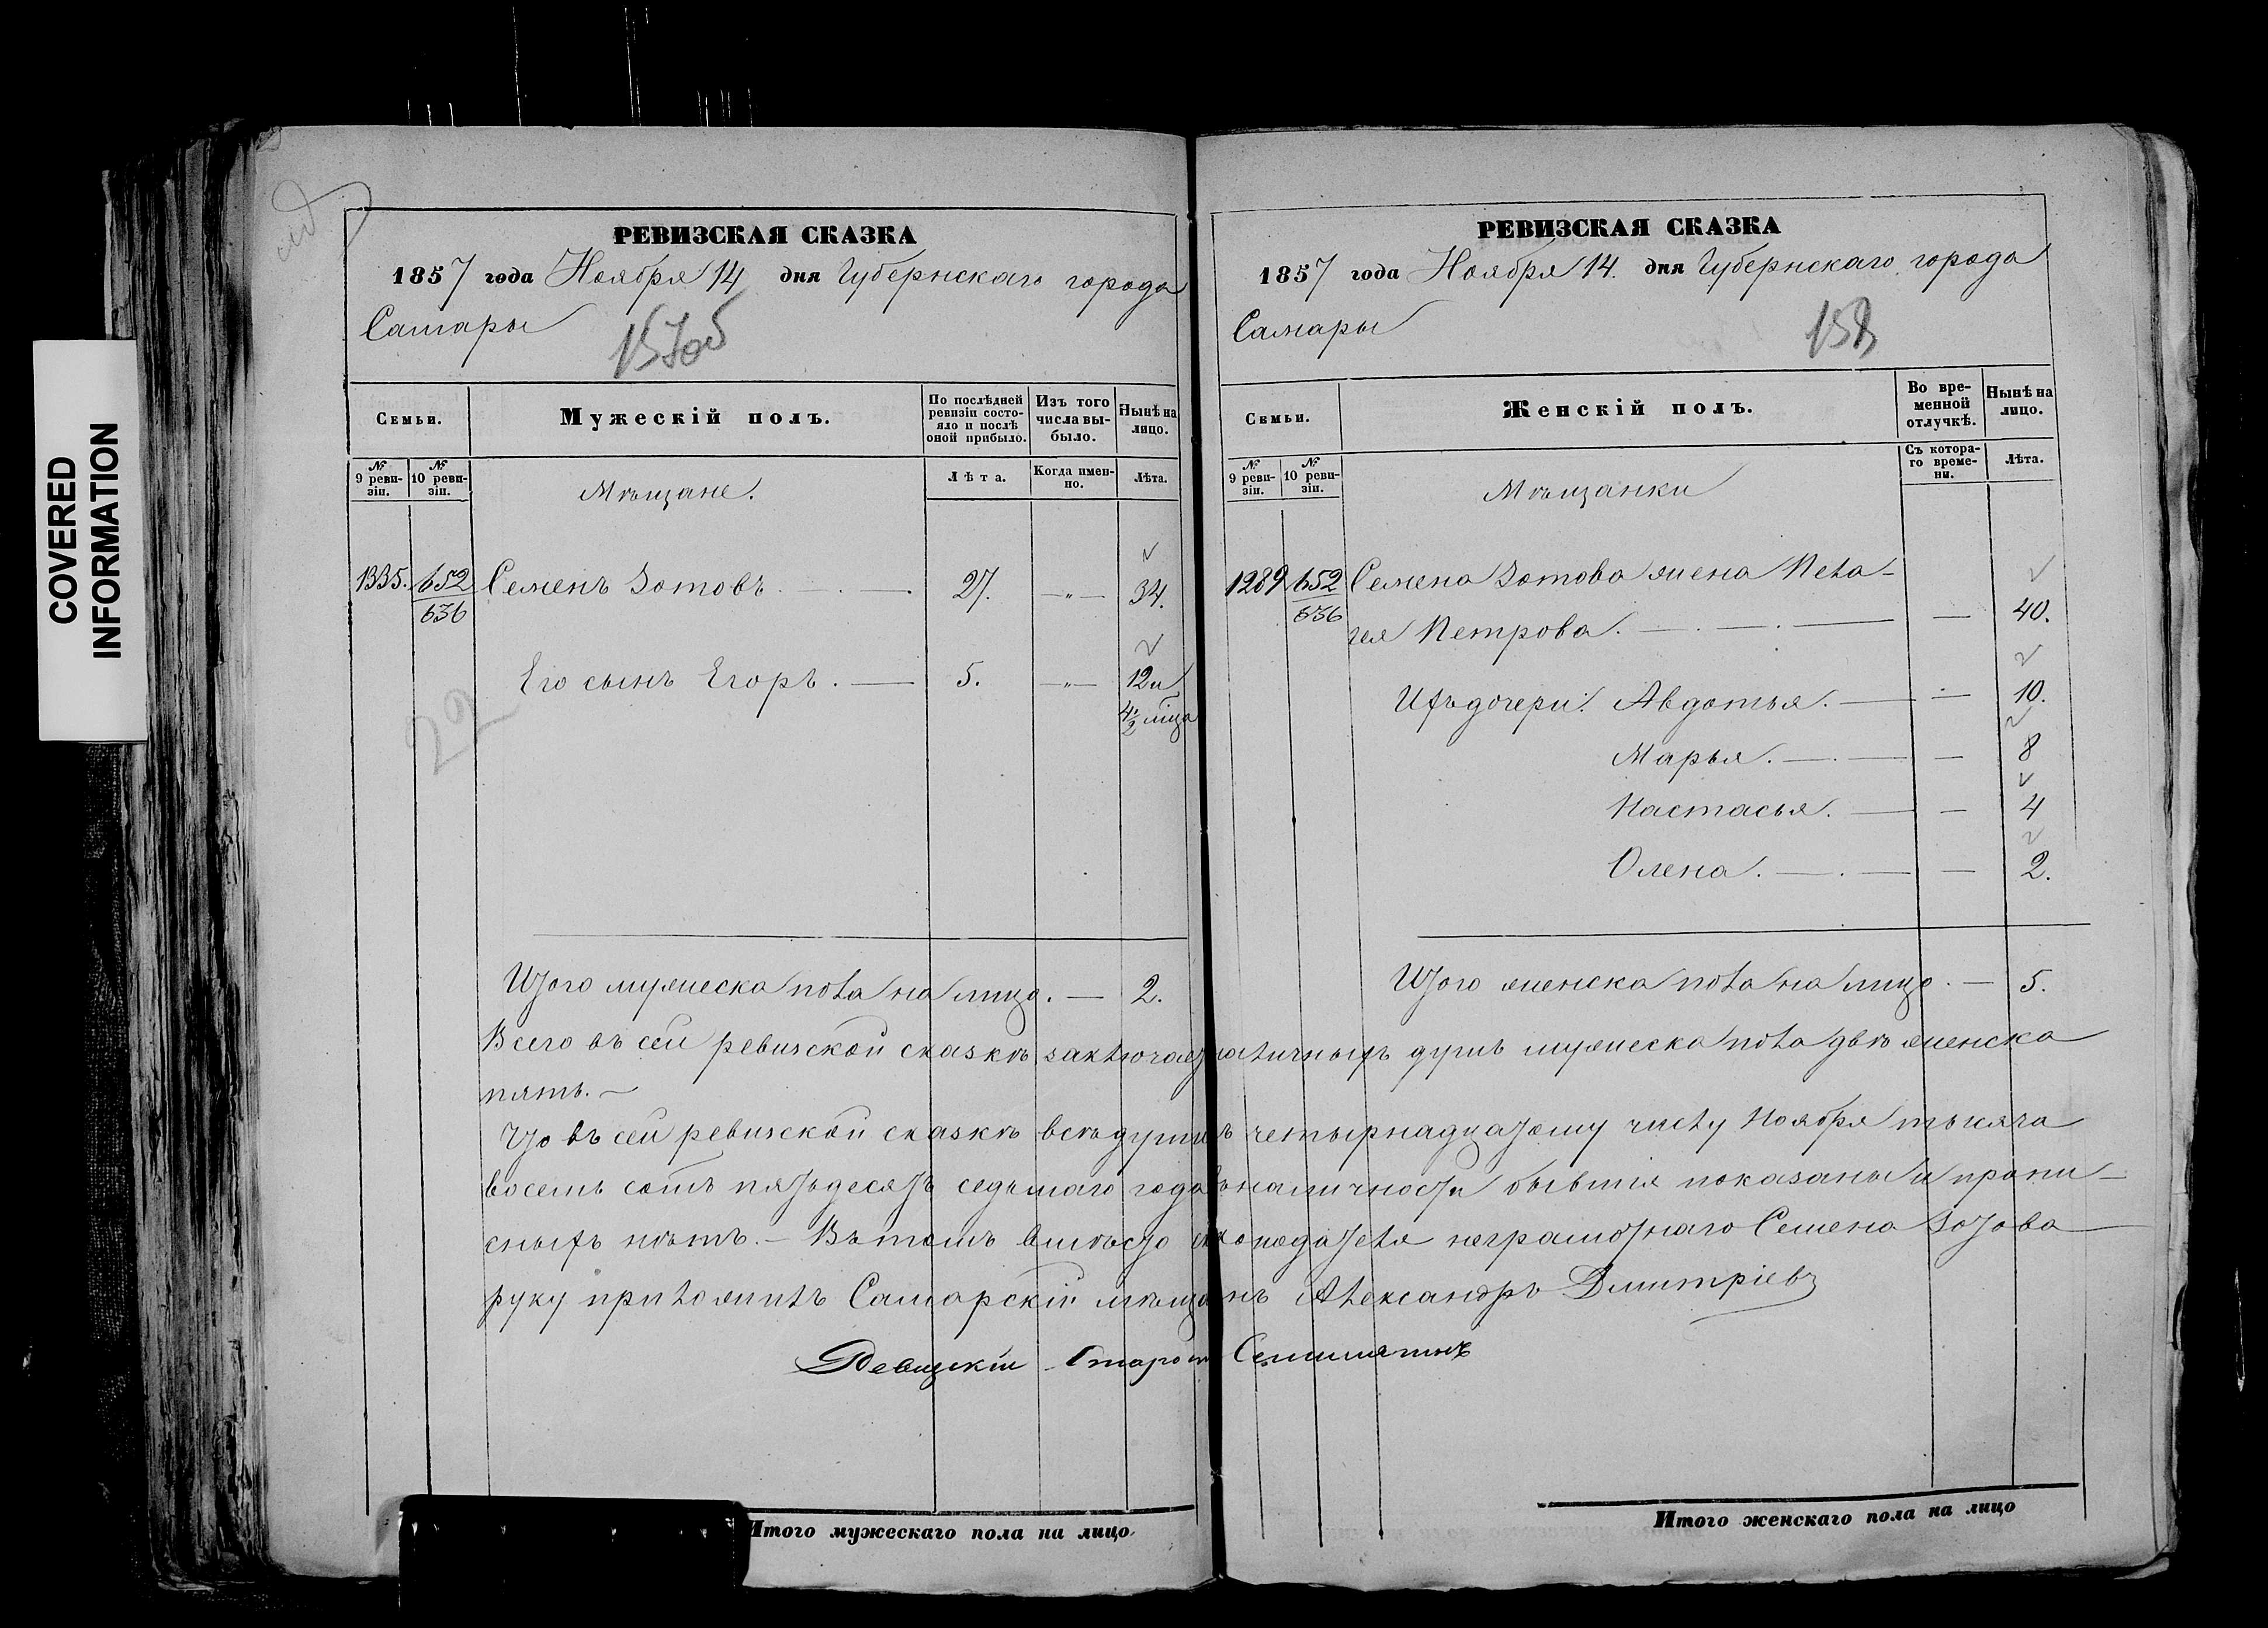 COVERED
INFORMATION
РЕВИЗСКАЯ СКАЗКА
1857 года Ноября 14 дня Губернскаго города
Самары
157об
Семьи.
Мужескій полъ.
По послѣдней ревизіи состояло и послѣ оной прибыло.
Изъ того числа выбыло.
Нынѣ на лицо.
№ 9 ревизіи.
№ 10 ревизіи.
Мѣщане.
Лѣта.
Когда именно.
Лѣта.
1335. 652 Семенъ Зотовъ. 27. — „ — 34.
636
Его сынъ Егоръ. 5. — „ — 12 и
4 1/2 мѣца
22
Итого мужеска пола на лицо. — 2.
РЕВИЗСКАЯ СКАЗКА
1857 года Ноября 14. дня Губернскаго города
Самары
158
Семьи.
Женскій полъ.
Во временной отлучкѣ.
Нынѣ на лицо.
№ 9 ревизіи.
№ 10 ревизіи.
Мѣщанки
Съ котораго времени.
Лѣта.
1289 652 Семена Зотова жена Пела-
636 гея Петрова. — 40.
Ихъ дочери: Авдотья. — 10.
Марья. — 8
Настасья. — 4
Олена. — 2.
Итого женска пола на лицо. — 5.
Всего въ сей ревизской сказкѣ заключает наличныхъ душъ мужеска пола двѣ женска
пять. —
Что въ сей ревизской сказкѣ всѣ души къ четырнадцатому числу Ноября тысяча
восемь сотъ пятьдесятъ седьмаго года въ наличности бывшія показаны и пропи-
сныхъ нѣтъ. — Въ томъ вмѣсто сказкоподателя неграмотнаго Семена Зотова
руку приложилъ Самарскій мѣщанъ Александръ Дмитріевъ
Ревизскій Старо
Итого мужескаго пола на лицо
Итого женскаго пола на лицо